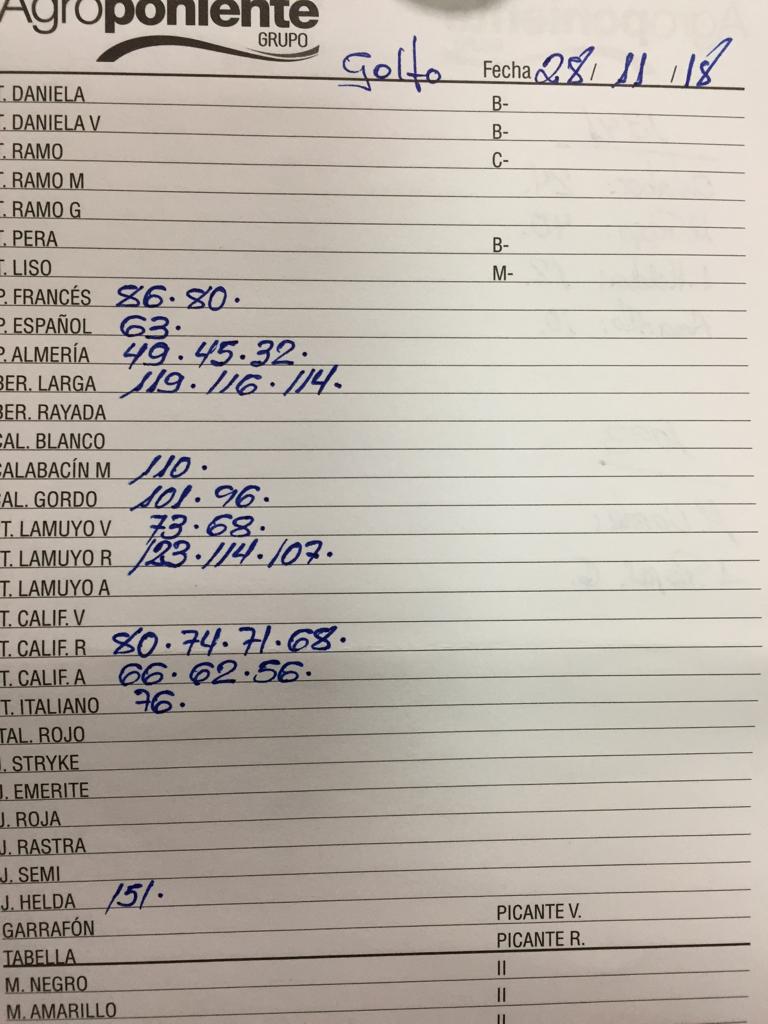 Agroponiente
GRUPO
Golfo Fecha 28/11/18
T. DANIELA B-
T. DANIELA V B-
T. RAMO C-
T. RAMO M
T. RAMO G
T. PERA B-
T. LISO M-
P. FRANCÉS 86. 80.
P. ESPAÑOL 63.
P. ALMERÍA 49. 45. 32.
BER. LARGA 119. 116. 114.
BER. RAYADA
CAL. BLANCO
CALABACÍN M 110.
CAL. GORDO 101. 96.
T. LAMUYO V 73. 68.
T. LAMUYO R 123. 114. 107.
T. LAMUYO A
T. CALIF. V
T. CALIF. R 80. 74. 71. 68.
T. CALIF. A 66. 62. 56.
T. ITALIANO 76.
TAL. ROJO
J. STRYKE
J. EMERITE
J. ROJA
J. RASTRA
J. SEMI
J. HELDA 151.
GARRAFÓN PICANTE V.
TABELLA PICANTE R.
M. NEGRO II
M. AMARILLO II
II